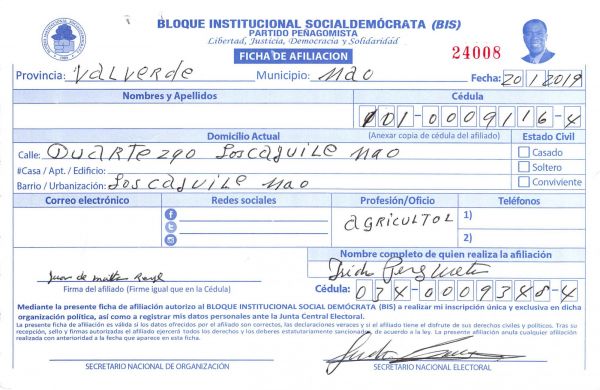 BLOQUE INSTITUCIONAL SOCIALDEMÓCRATA (BIS)
PARTIDO PEÑAGOMISTA
Libertad, Justicia, Democracia y Solidaridad
FICHA DE AFILIACION
24008
Provincia: Valverde Municipio: Mao Fecha: 20/1/2019
Nombres y Apellidos Cédula
001-0009116-4
Domicilio Actual (Anexar copia de cédula del afiliado) Estado Civil
Calle: Mao
Casado
#Casa / Apt. / Edificio:
Soltero
Barrio / Urbanización: Mao
Conviviente
Correo electrónico Redes sociales Profesión/Oficio Teléfonos
AGRICULTOL
1)
2)
Nombre completo de quien realiza la afiliación
Juan de
Firma del afiliado (Firme igual que en la Cédula)
Cédula: 034-0009348-4
Mediante la presente ficha de afiliación autorizo al BLOQUE INSTITUCIONAL SOCIAL DEMÓCRATA (BIS) a realizar mi inscripción única y exclusiva en dicha
organización política, así como a registrar mis datos personales ante la Junta Central Electoral.
La presente ficha de afiliación es válida si los datos ofrecidos por el afiliado son correctos, las declaraciones veraces y si el afiliado tiene el disfrute de sus derechos civiles y políticos. Tras su
recepción, sello y firmas autorizadas el afiliado ejercerá todos los derechos y los deberes estatutariamente sancionados, de acuerdo a la ley. La presente afiliación anula cualquier afiliación
realizada con anterioridad a la fecha que aparece en esta ficha.
SECRETARIO NACIONAL DE ORGANIZACIÓN
SECRETARIO NACIONAL ELECTORAL